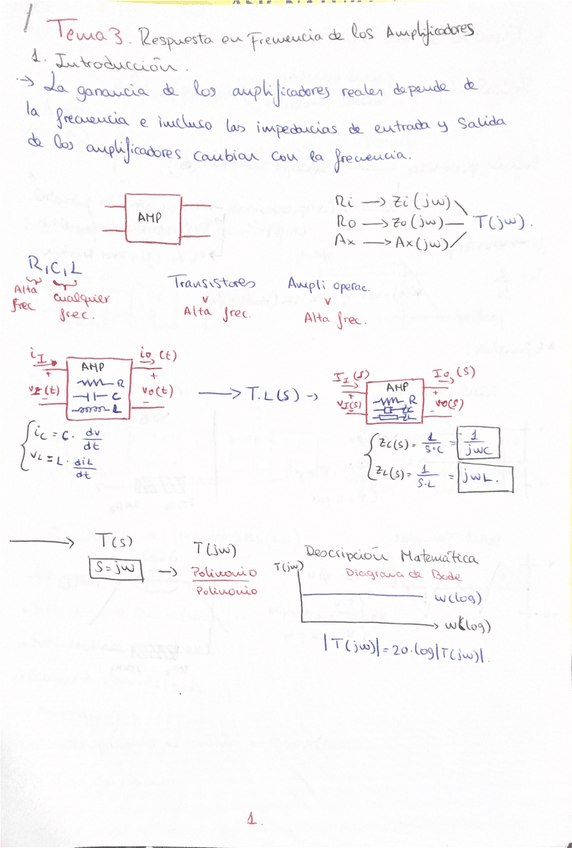 Tema 3. Respuesta en Frecuencia de los Amplificadores.
1. Introducción.
→ La ganancia de los amplificadores reales depende de
la frecuencia e incluso las impedancias de entrada y salida
de los amplificadores cambian con la frecuencia.
AMP
Ri → Zi(jw)
Ro → Zo(jw) — T(jw).
Ax → Ax(jw)
R,C,L
Alta frec
cualquier frec.
Transistores
Alta frec.
Ampli operac.
Alta frec.
iI io(t)
AMP
+ R +
vI(t) C vo(t)
- L -
→ T.L(s) →
II(s) Io(s)
AMP
+ R +
vI(s) vo(s)
- -
ic = C · dv/dt
vL = L · diL/dt
Zc(s) = 1/s·C = 1/jwC
ZL(s) = 1/s·L = jwL.
→ T(s)
s = jw
→ T(jw)
Polinomio
Polinomio
Descripción Matemática
Diagrama de Bode
T(jw)
w(log)
w(log)
|T(jw)| = 20·log|T(jw)|.
1.